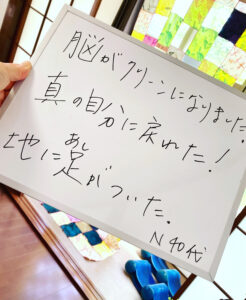 脳がクリーンになりました!
真の自分に戻れた!
あし
地に足がついた.
N 40代